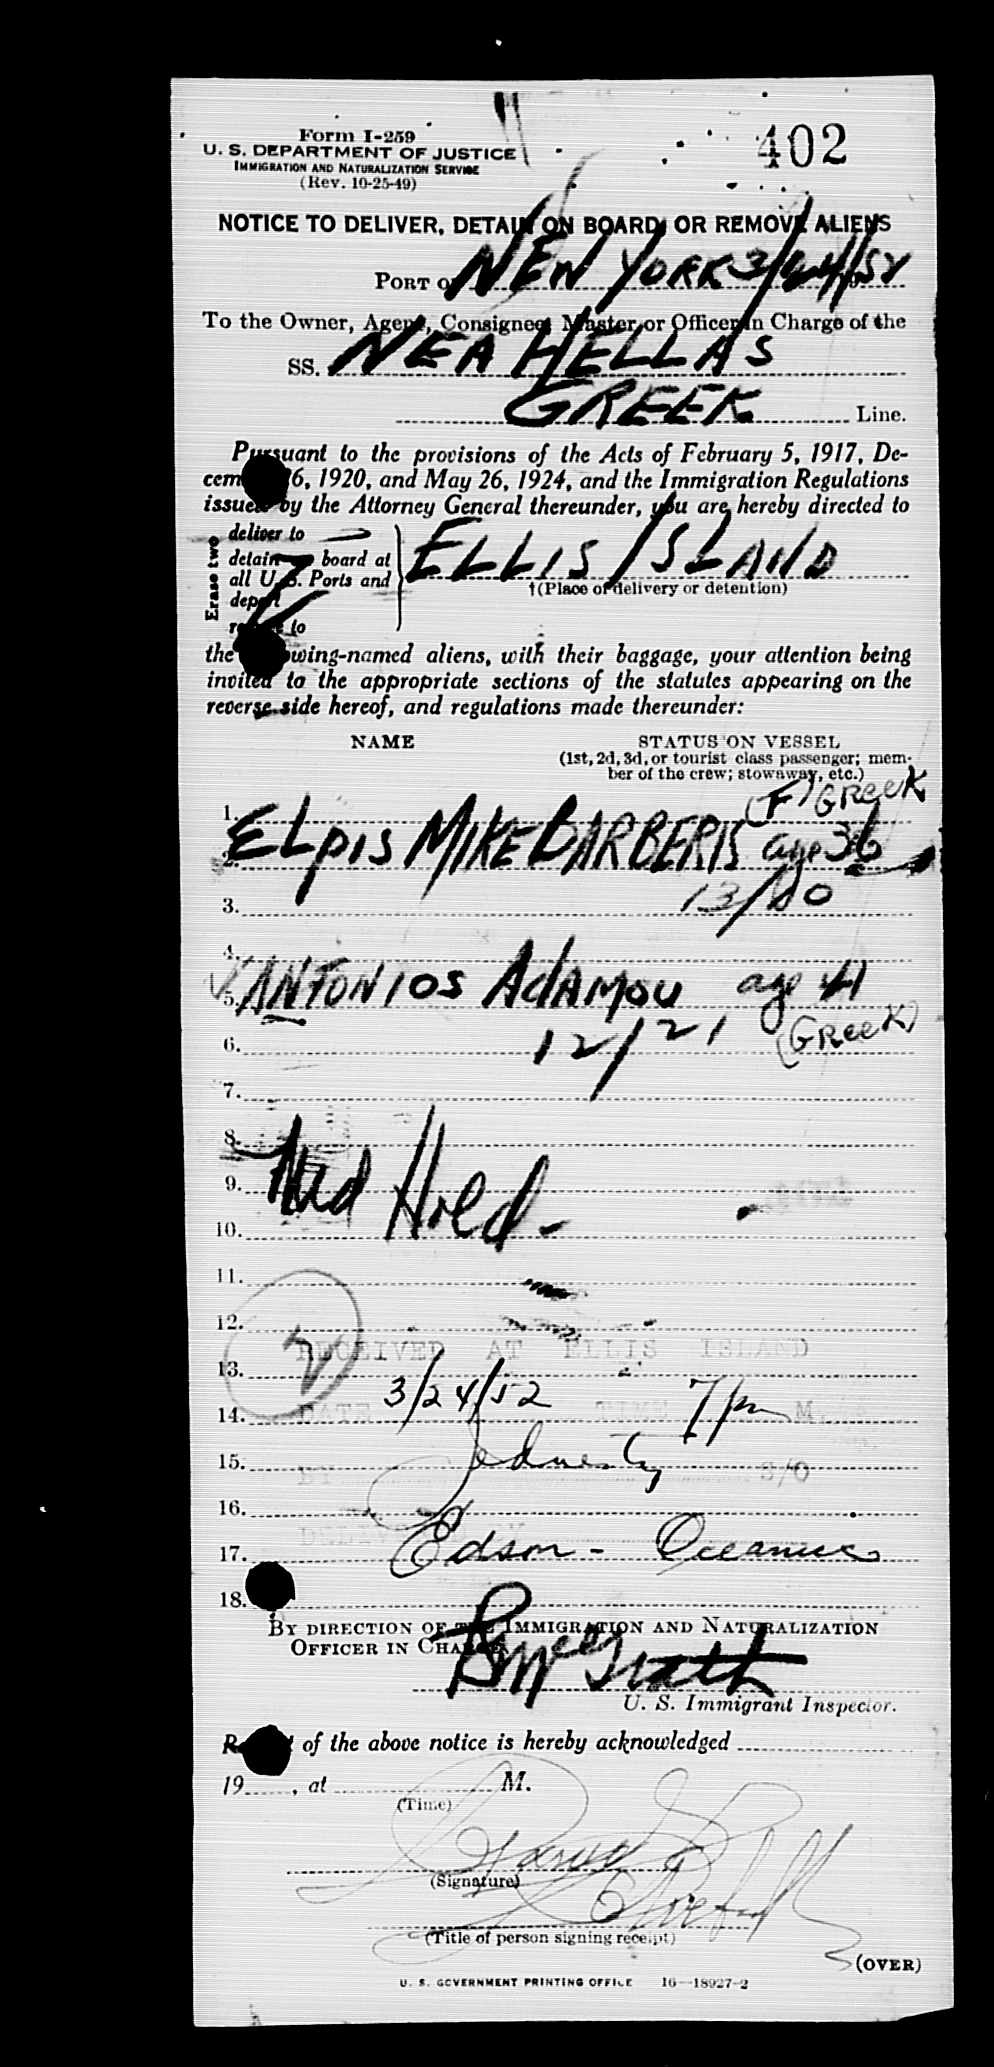 Form I-259
402
U. S. DEPARTMENT OF JUSTICE
IMMIGRATION AND NATURALIZATION SERVICE
(Rev. 10-25-49)
NOTICE TO DELIVER, DETAIN ON BOARD, OR REMOVE ALIENS
PORT OF NEW YORK 3/24/52
To the Owner, Agent, Consignee, Master or Officer in Charge of the
SS. NEA HELLAS
GREEK Line.
Pursuant to the provisions of the Acts of February 5, 1917, De-
cem 6, 1920, and May 26, 1924, and the Immigration Regulations
issued by the Attorney General thereunder, you are hereby directed to
Erase two
deliver to
detain board at
all U.S. Ports and
deport
to
ELLIS ISLAND
†(Place of delivery or detention)
the owing-named aliens, with their baggage, your attention being
invited to the appropriate sections of the statutes appearing on the
reverse side hereof, and regulations made thereunder:
NAME STATUS ON VESSEL
(1st, 2d, 3d, or tourist class passenger; mem-
ber of the crew; stowaway, etc.)
1. (F) GREEK
2. ELPIS MIKE BARBERIS age 36
3. 13/20
4.
5. ANTONIOS ADAMOU age 41
6. 12/21 (GREEK)
7.
8.
9. Med Hold -
10.
11.
12.
2
RECEIVED AT ELLIS ISLAND
13.
14. DATE 3/24/52 TIME 7 pm M.
15. BY S/O
16.
17. Edson -
18.
BY DIRECTION OF THE IMMIGRATION AND NATURALIZATION
OFFICER IN CHARGE
McGrath
U. S. Immigrant Inspector.
R t of the above notice is hereby acknowledged
19 , at M.
(Time)
(Signature)
(Title of person signing receipt)
(OVER)
U. S. GOVERNMENT PRINTING OFFICE 16—18927-2